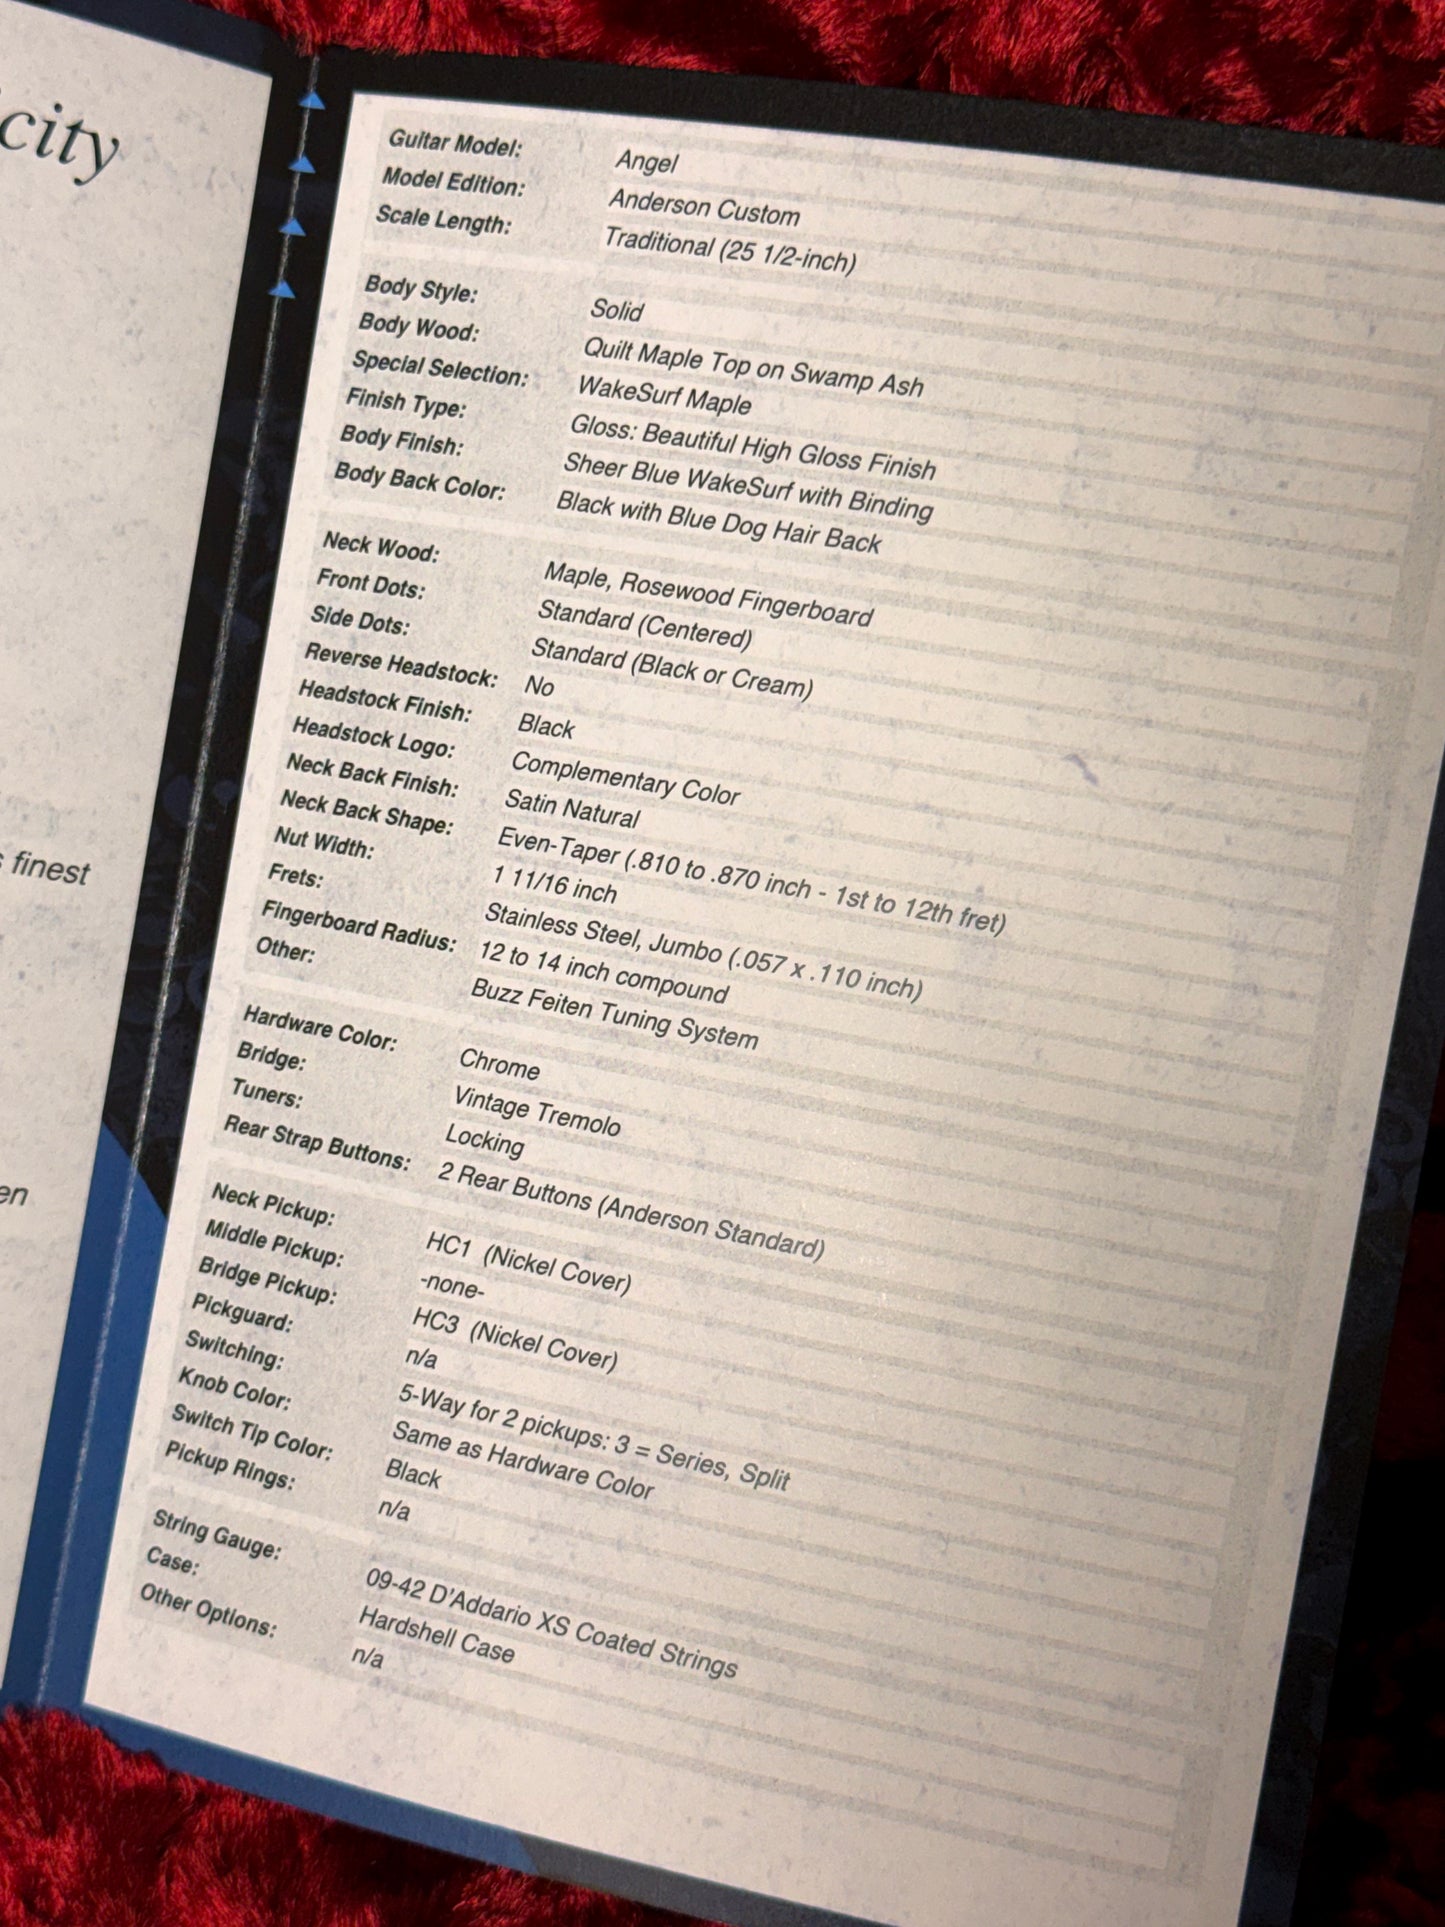 city
finest
en
Guitar Model: Angel
Model Edition: Anderson Custom
Scale Length: Traditional (25 1/2-inch)
Body Style: Solid
Body Wood: Quilt Maple Top on Swamp Ash
Special Selection: WakeSurf Maple
Finish Type: Gloss: Beautiful High Gloss Finish
Body Finish: Sheer Blue WakeSurf with Binding
Body Back Color: Black with Blue Dog Hair Back
Neck Wood: Maple, Rosewood Fingerboard
Front Dots: Standard (Centered)
Side Dots: Standard (Black or Cream)
Reverse Headstock: No
Headstock Finish: Black
Headstock Logo: Complementary Color
Neck Back Finish: Satin Natural
Neck Back Shape: Even-Taper (.810 to .870 inch - 1st to 12th fret)
Nut Width: 1 11/16 inch
Frets: Stainless Steel, Jumbo (.057 x .110 inch)
Fingerboard Radius: 12 to 14 inch compound
Other: Buzz Feiten Tuning System
Hardware Color: Chrome
Bridge: Vintage Tremolo
Tuners: Locking
Rear Strap Buttons: 2 Rear Buttons (Anderson Standard)
Neck Pickup: HC1 (Nickel Cover)
Middle Pickup: -none-
Bridge Pickup: HC3 (Nickel Cover)
Pickguard: n/a
Switching: 5-Way for 2 pickups: 3 = Series, Split
Knob Color: Same as Hardware Color
Switch Tip Color: Black
Pickup Rings: n/a
String Gauge: 09-42 D'Addario XS Coated Strings
Case: Hardshell Case
Other Options: n/a